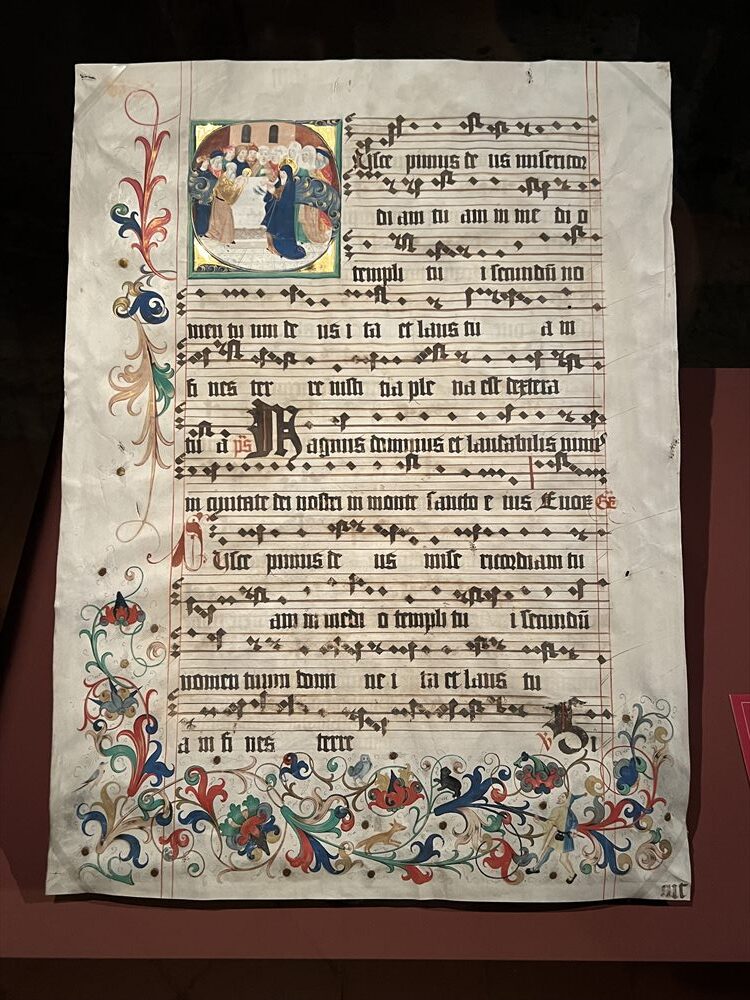 Usce pimus de us misericor
di am tu am in me di o
templi tu i secundū no
men tu um de us i ta et laus tu a in
fi nes ter re iusti tia ple na est dextera
tu a ps Magnus dominus et laudabilis nimis
in ciuitate dei nostri in monte sancto e ius
Susce pimus de us mise ricordiam tu
am in medi o templi tu i secundū
nomen tuum domi ne i ta et laus tu
a in fi nes terre V Si